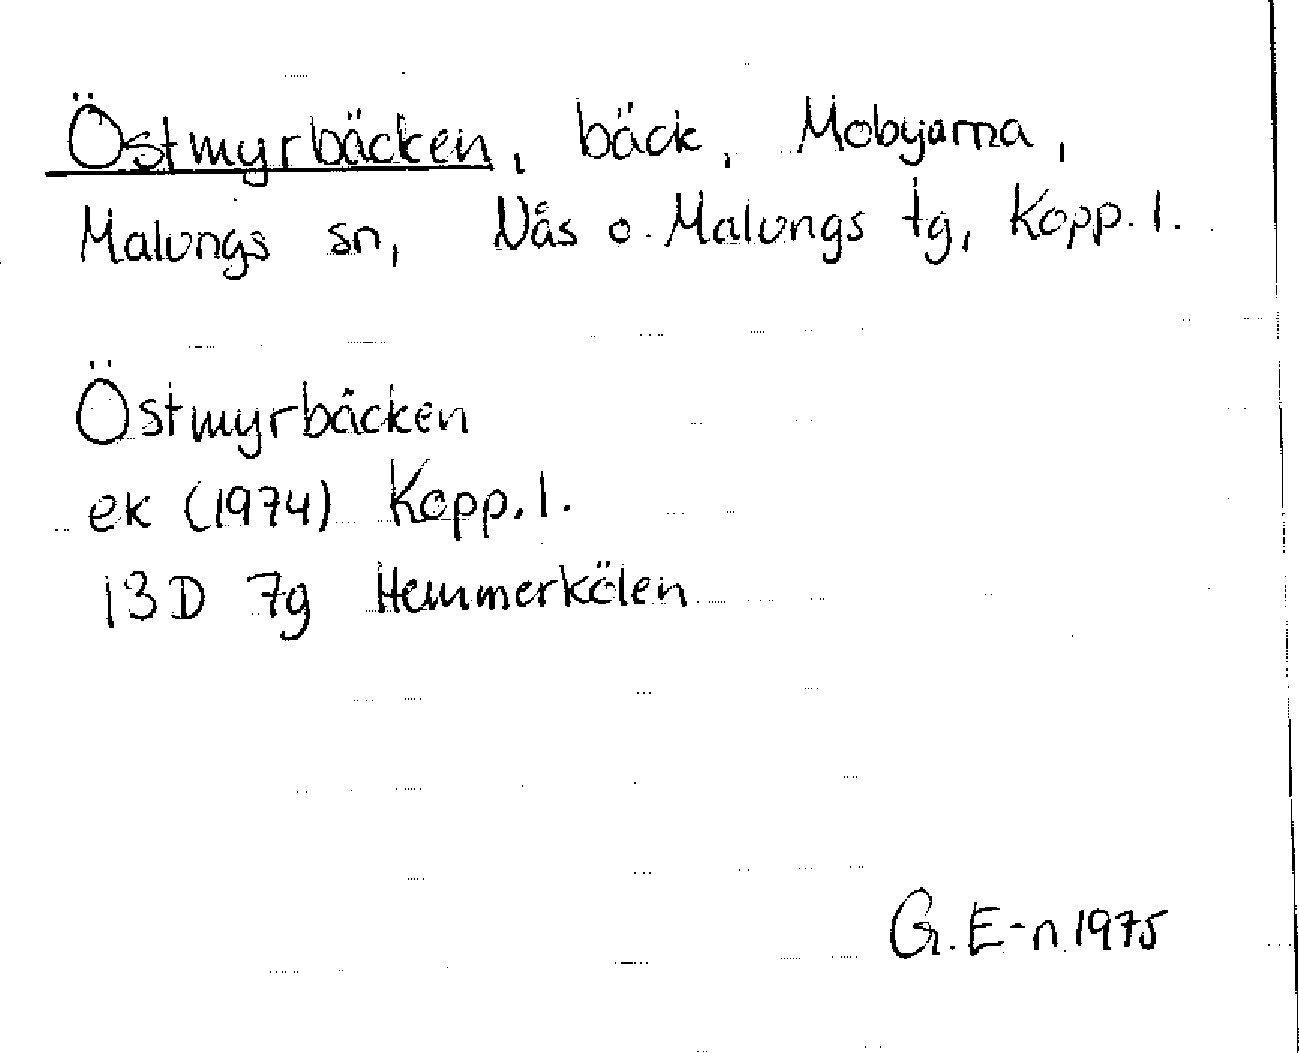 Östmyrbäcken, bäck, Mobyarna,
Malungs sn, Nås o. Malungs tg, Kopp. l.
Östmyrbäcken
ek (1974) Kopp. l.
13D 7g Hemmerkölen
G. E-n 1975